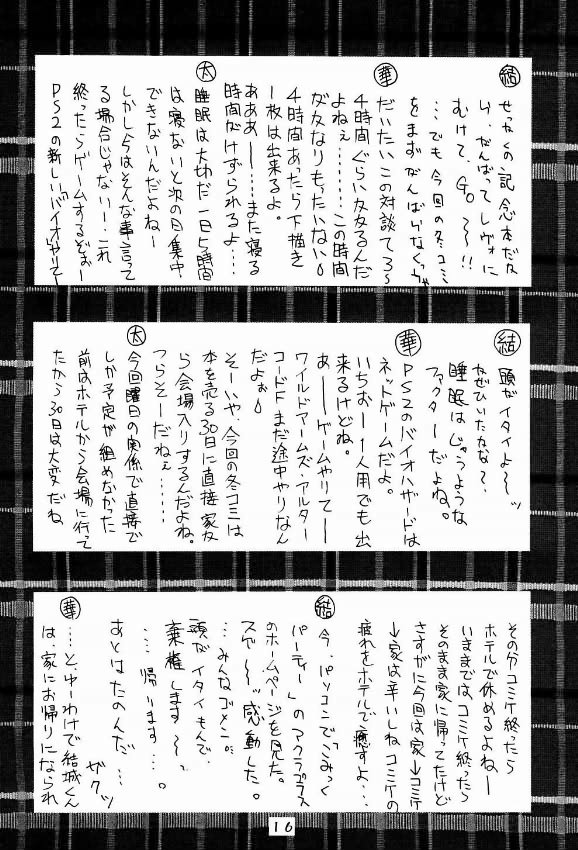 結
せっかくの記念本だな
い、がんばってレヴォに
むけて、GO～～!!
…でも今回の冬コミ
をまずがんばらなくっちゃ
華
だいたいこの対談てろ～
4時間ぐらい欠欠るんだ
よねぇ……この時間
が友なりもったいない。
4時間あったら下描き
1枚は出来るよ。
あああ――…また寝る
時間がけずられるよ……
太
睡眠は大切だ一日5時間
は寝ないと次の日集中
できないんだよねー
しかし今はそんな事言って
る場合じゃないー。これ
終ったらゲームするぞぉー
PS2の新しいバイオやりて～
結
頭がイタイよ～～ッ
かぜひいたかな～、
睡眠はじゅうような
ファクターだよね。
華
PS2のバイオハザードは
ネットゲームだよ。
いちおー1人用でも出
来るけどね。
あ――ゲームやりてー
ワイルドアームズ・アルター
コードFまだ途中やりなん
だよぉ。
そーいや今回の冬コミは
本を売る30日に直接家か
ら会場入りするんだよね。
つらそーだねぇ……
太
今回曜日の関係で直接で
しか予定が組めなかた
前はホテルから会場に行って
たから30日は大変だね
その分コミケ終ったら
ホテルで休めるよねー
いままではコミケ終ったら
そのまま家に帰ってたけど
さすがに今回は家→コミケ
→家は辛いしねコミケの
疲れをホテルで癒すよ…
結
今、パソコンで「こみっく
パーティー」のアクアプラス
のホームページを見た。
スゲ～～ッ感動した。
…みんなゴメン。
頭がイタイもんで、
棄権します～。
…帰ります…。
あとはたのんだ…
ザクッ
華
…とゆーわけで結城くん
は家にお帰りになられ
16